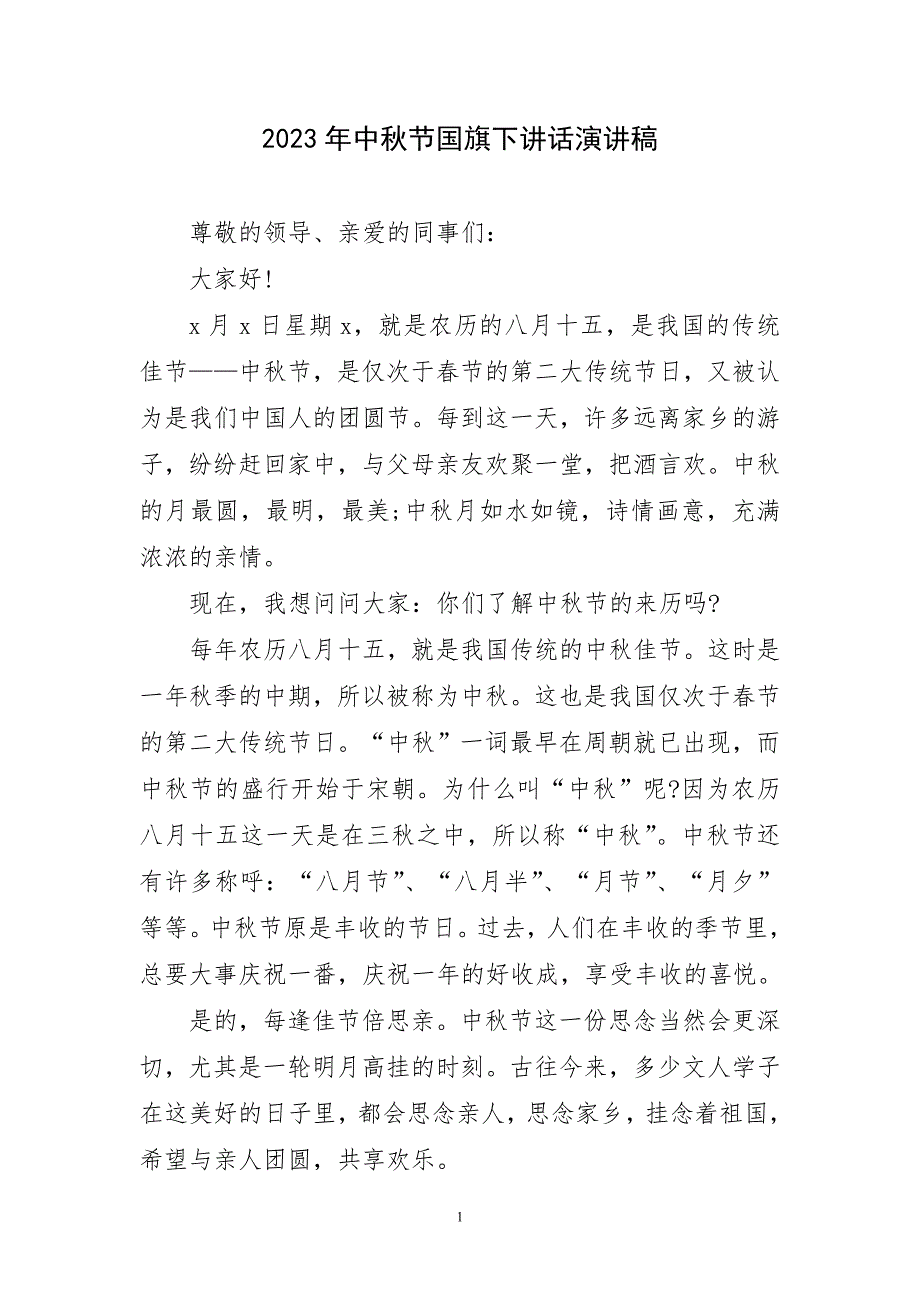 2023 年中秋节国旗下讲话演讲稿
尊敬的领导、亲爱的同事们：
大家好!
x 月 x 日星期 x，就是农历的八月十五，是我国的传统
佳节——中秋节，是仅次于春节的第二大传统节日，又被认
为是我们中国人的团圆节。每到这一天，许多远离家乡的游
子，纷纷赶回家中，与父母亲友欢聚一堂，把酒言欢。中秋
的月最圆，最明，最美;中秋月如水如镜，诗情画意，充满
浓浓的亲情。
现在，我想问问大家：你们了解中秋节的来历吗?
每年农历八月十五，就是我国传统的中秋佳节。这时是
一年秋季的中期，所以被称为中秋。这也是我国仅次于春节
的第二大传统节日。“中秋”一词最早在周朝就已出现，而
中秋节的盛行开始于宋朝。为什么叫“中秋”呢?因为农历
八月十五这一天是在三秋之中，所以称“中秋”。中秋节还
有许多称呼：“八月节”、“八月半”、“月节”、“月夕”
等等。中秋节原是丰收的节日。过去，人们在丰收的季节里，
总要大事庆祝一番，庆祝一年的好收成，享受丰收的喜悦。
是的，每逢佳节倍思亲。中秋节这一份思念当然会更深
切，尤其是一轮明月高挂的时刻。古往今来，多少文人学子
在这美好的日子里，都会思念亲人，思念家乡，挂念着祖国，
希望与亲人团圆，共享欢乐。
1